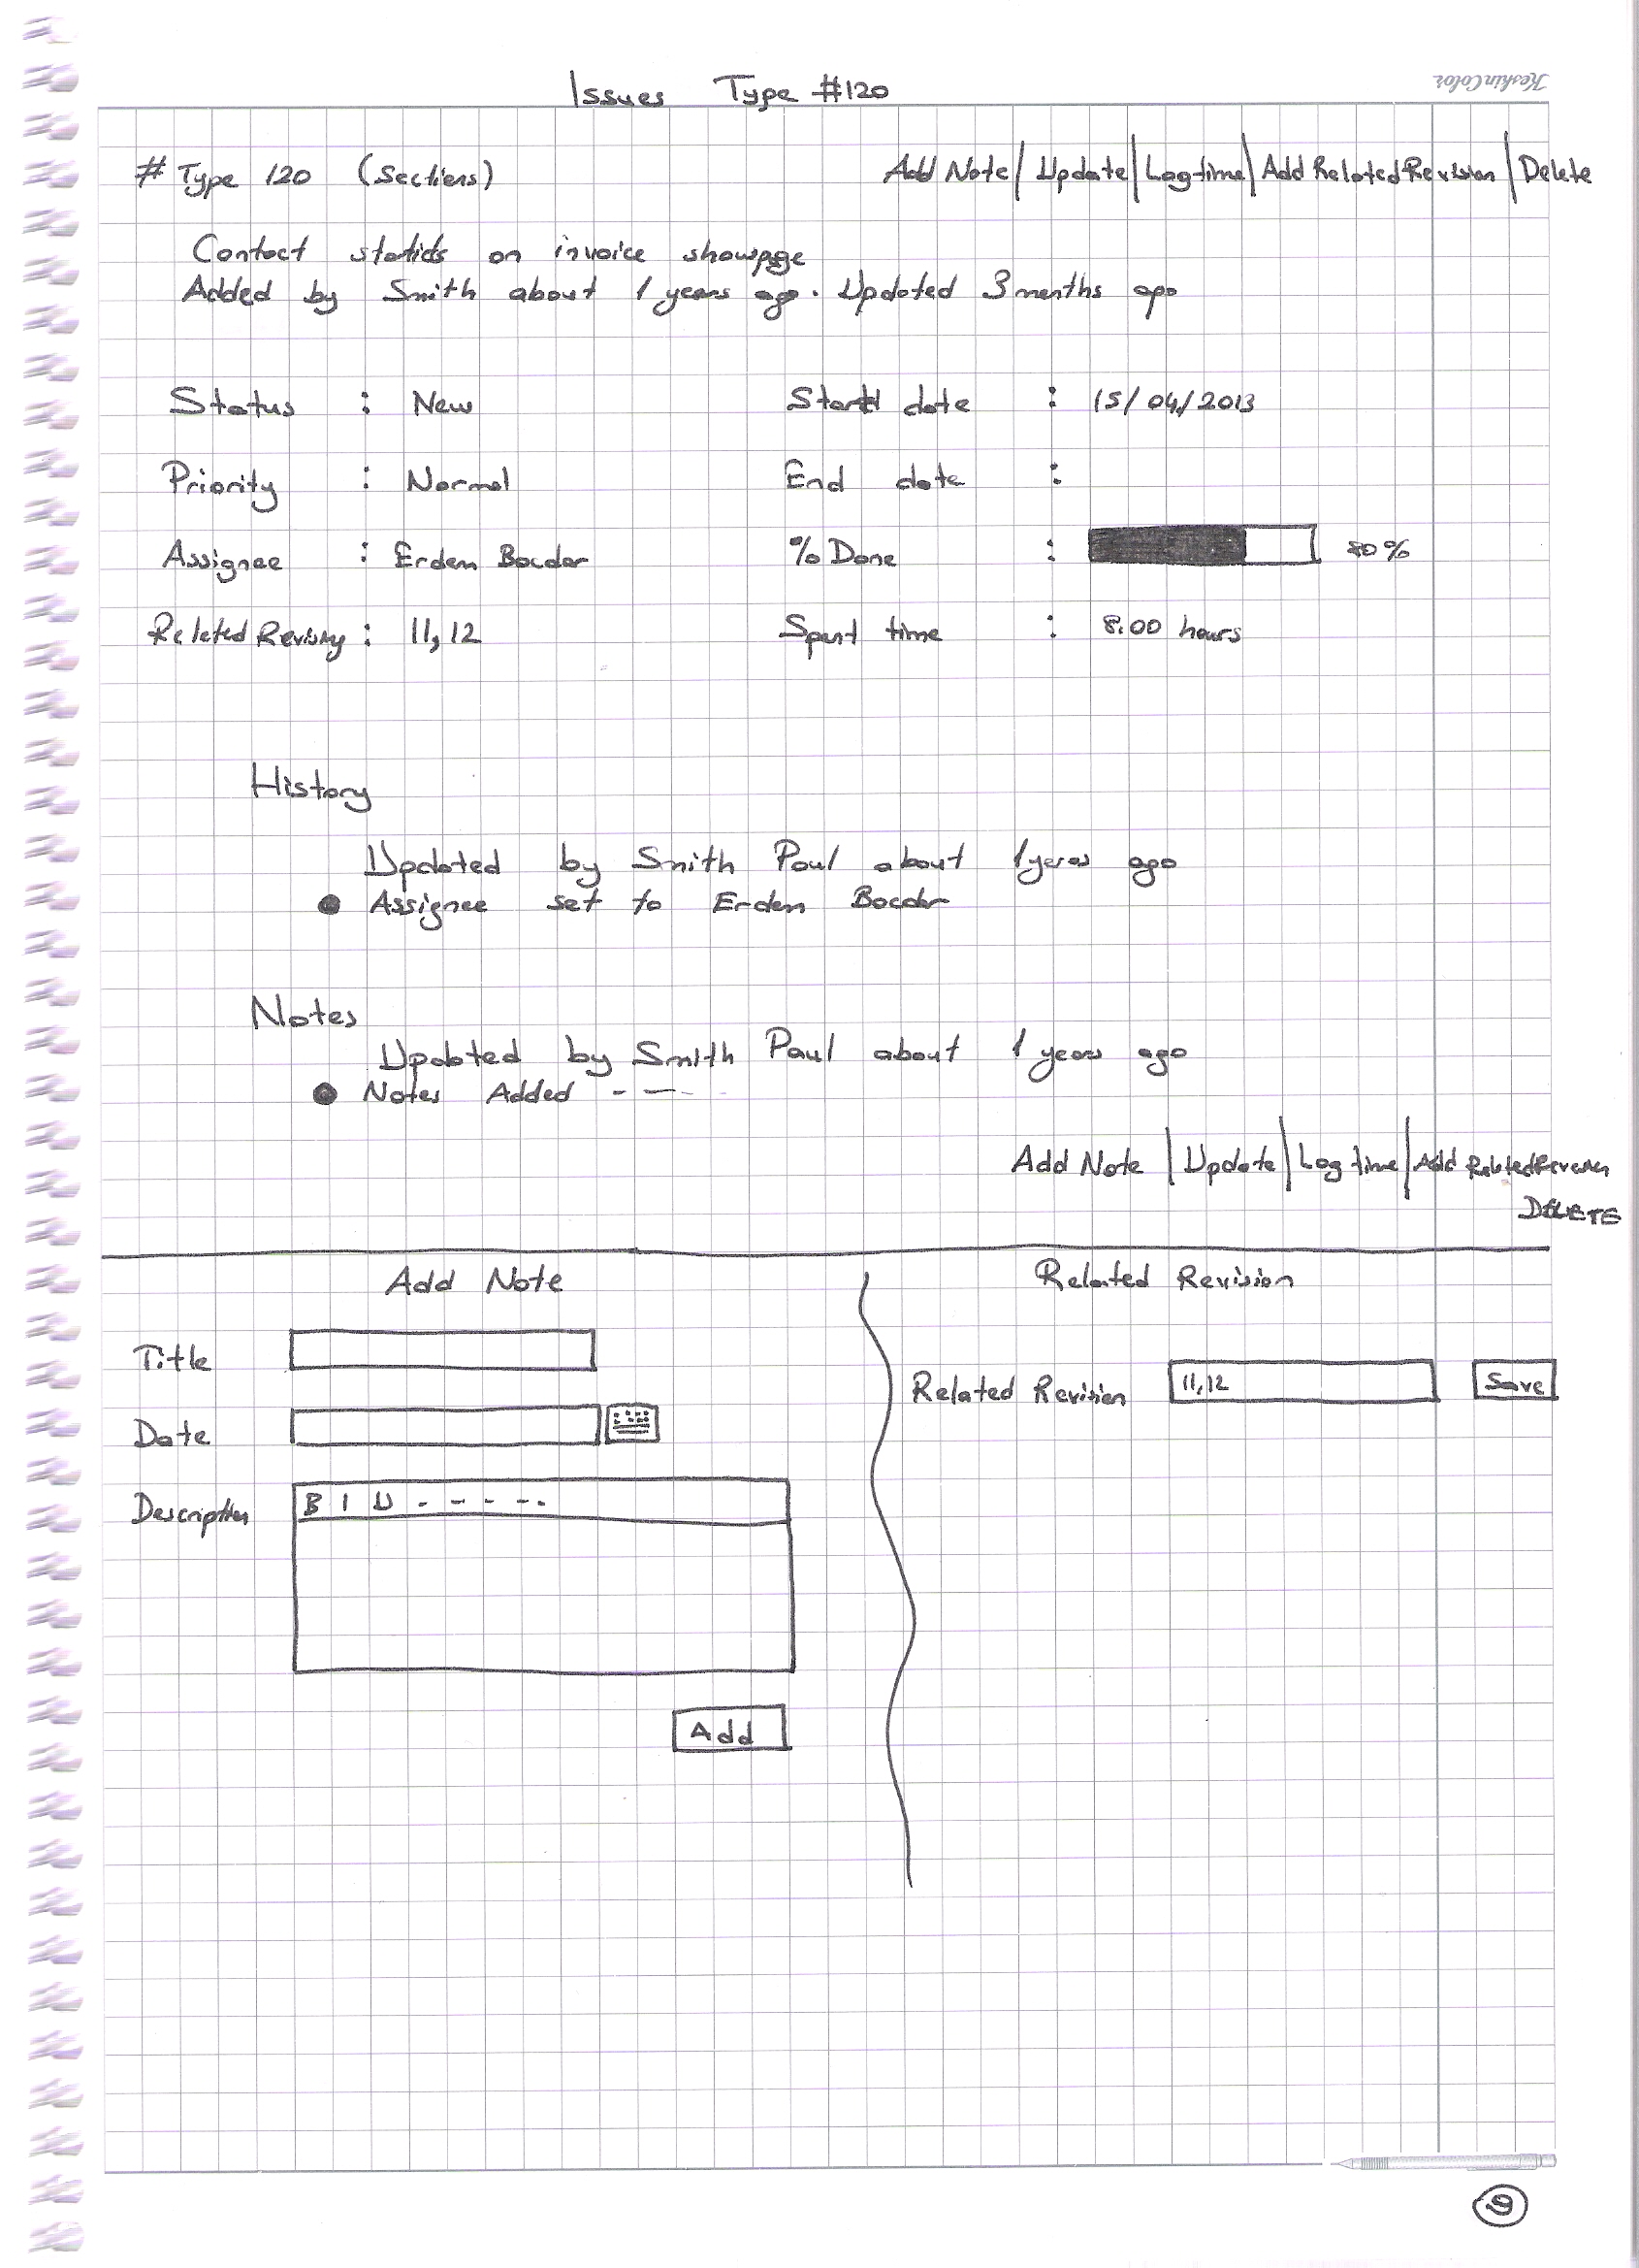 KeskinColor
Issues Type #120
# Type 120 (Sections) Add Note | Update | Log time | Add Related Revision | Delete
Contact statids on invoice showpage
Added by Smith about 1 years ago. Updated 3 months ago
Status : New Start date : 15/04/2013
Priority : Normal End date :
Assignee : Erdem Bocdor % Done : 80%
Related : 11,12 Spent time : 8:00 hours
History
Updated by Smith Paul about 1 years ago
● Assignee set to Erdem Bocdor
Notes
Updated by Smith Paul about 1 years ago
● Notes Added - — -
Add Note | Update | Log time | Add Related
DELETE
Add Note Related Revision
Title
Related Revision 11,12 Save
Date
Description B I U - - - - -
Add
9